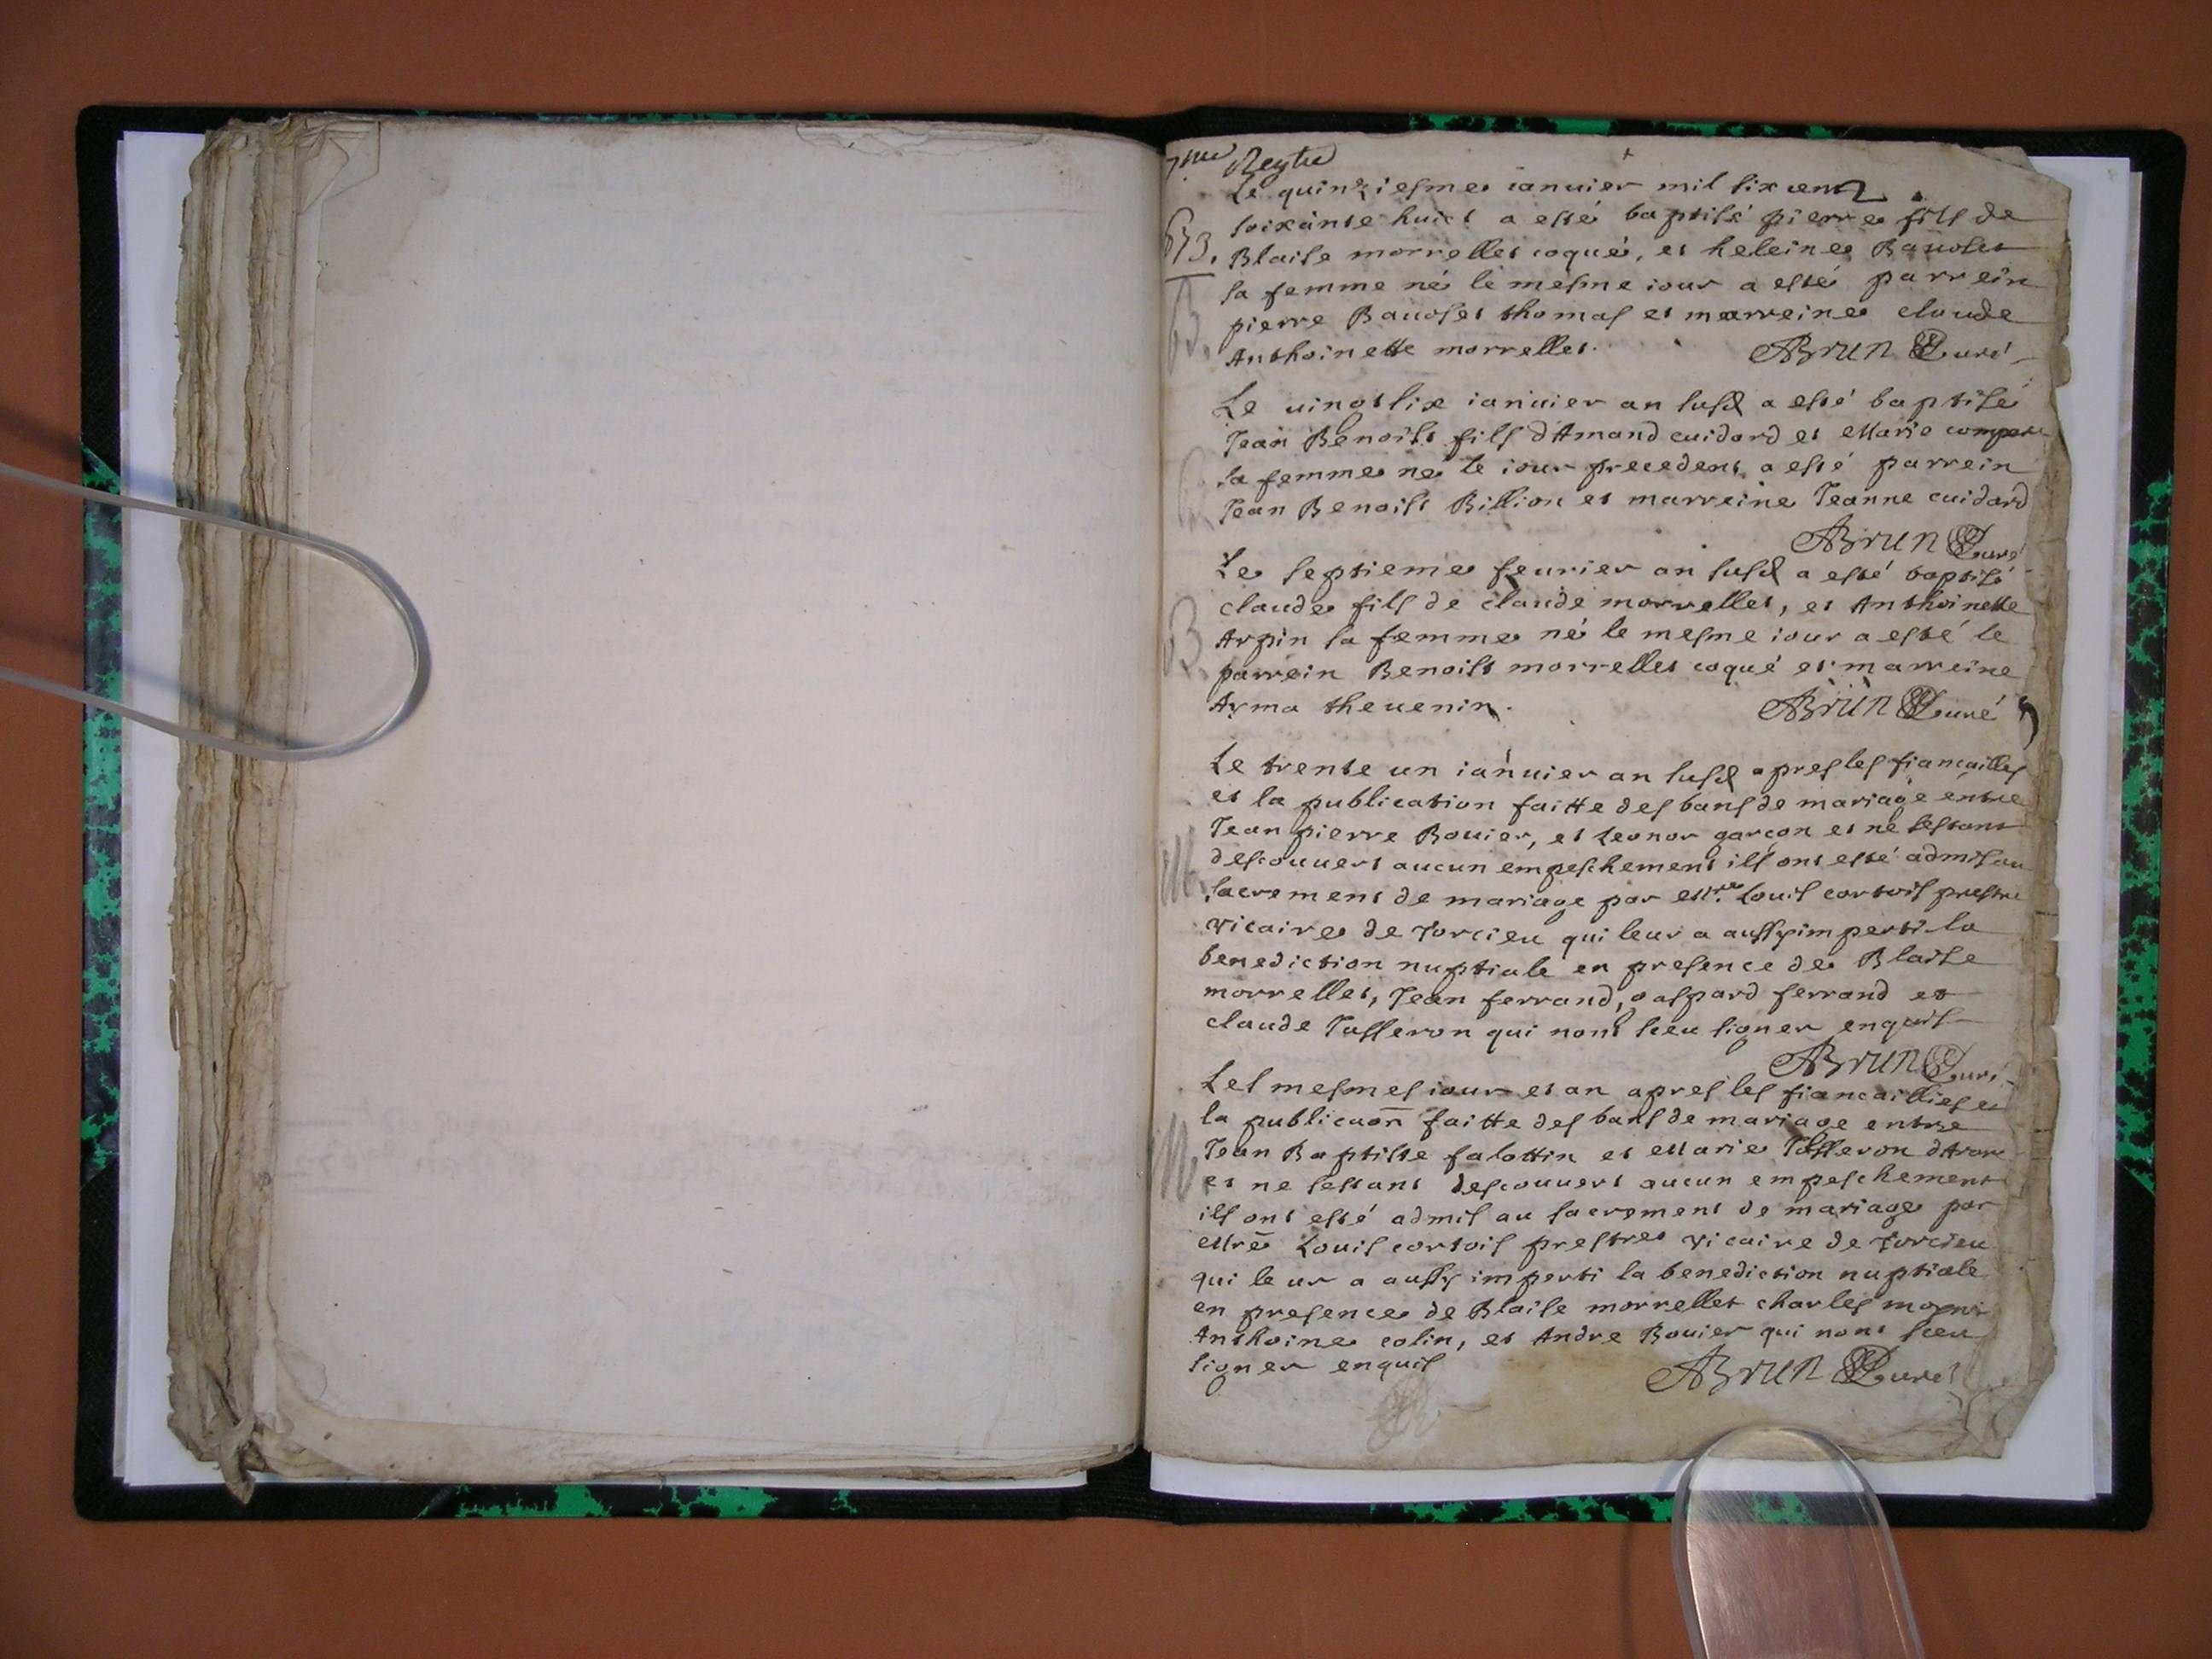 7me Regtre
Le quinziesme ianuier mil six cent
soixante huict a esté baptisé pierre fils de
Blaise morrellet coqué, et heleine Bauoset
sa femme né le mesme iour a esté parrein
pierre Bauoset thomas et marreine claude
Anthoinette morrellet. ABrun Curé
Le uingtsix ianuier an susd a esté baptisé
Jean Benoist fils d'Amand cuidard et Marie
sa femme né le iour precedent a esté parrein
Jean Benoist Billion et marreine Jeanne cuidard
ABrun Curé
Le septieme feurier an susd a esté baptisé
claude fils de claude morrellet, et Anthoinette
Arpin sa femme né le mesme iour a esté le
parrein Benoist morrellet coqué et marreine
Ayma theuenin. ABrun Curé
Le trente un ianuier an susd apres les fiancailles
et la publication faitte des bans de mariage entre
Jean pierre Bouier, et Leonor garçon et ne sestant
descouuert aucun empeschement ils ont esté admis au
sacrement de mariage par Mre Louis cortois prestre
vicaire de Torcieu qui leur a aussy imperti la
benediction nuptiale en presence de Blaise
morrellet, Jean ferrand, gaspard ferrand et
claude Tasseron qui nont sceu signer enquis
ABrun Curé
Les mesmes iour et an apres les fiancailles et
la publicaon faitte des bans de mariage entre
Jean Baptiste falottin et Marie Tasseron
et ne sestant descouuert aucun empeschement
ils ont esté admis au sacrement de mariage par
Mre Louis cortois prestre vicaire de Torcieu
qui leur a aussy imperti la benediction nuptiale
en presence de Blaise morrellet charles
Anthoine colin, et Andre Bouier qui nont sceu
signer enquis ABrun Curé